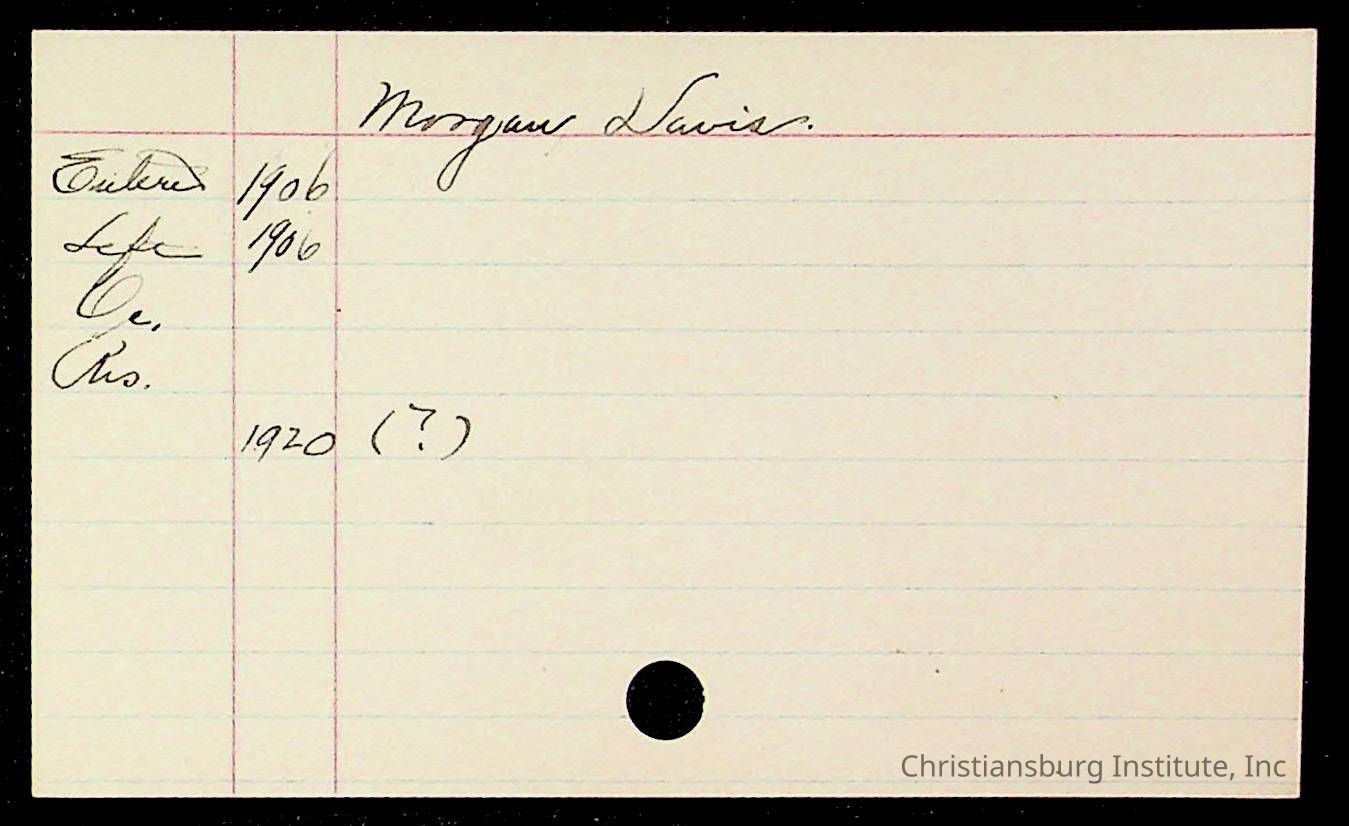 Morgan Davis.
Entered 1906
Left 1906
Oc.
Res.
1920 (?)
Christiansburg Institute, Inc